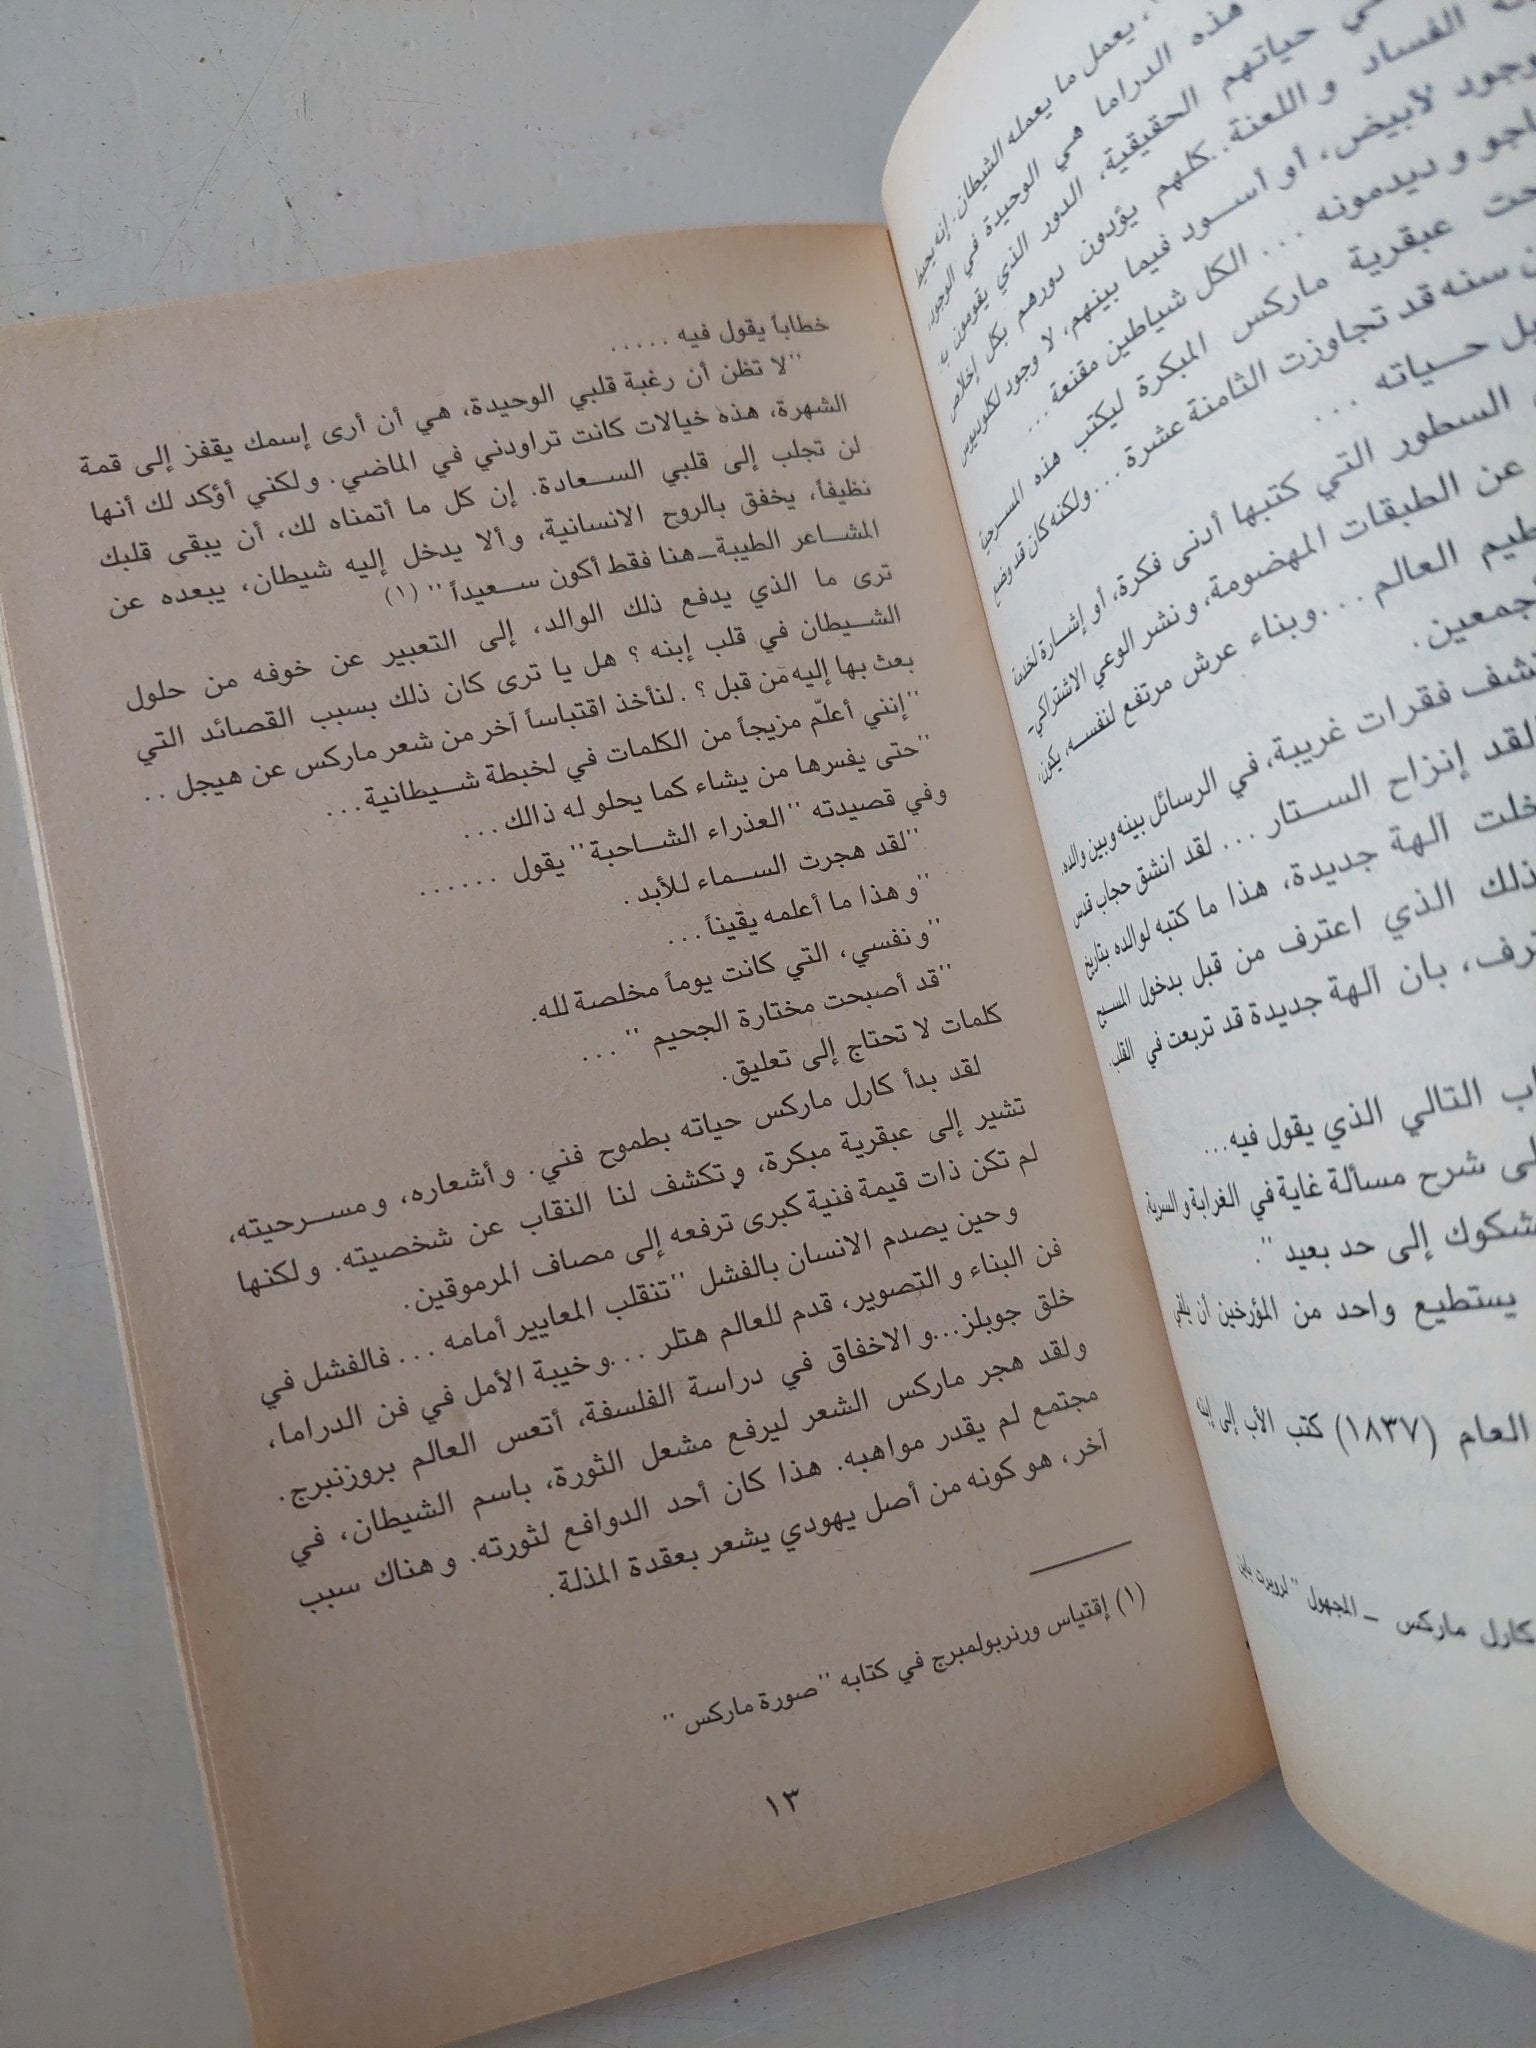 ، يعمل ما يعمله الشيطان. إنه يحيط
هذه الدراما هي الوحيدة في الوجود،
حياتهم الحقيقية، الدور الذي يقومون به
الفساد و اللعنة.. كلهم يؤدون دورهم بكل إخلاص
وجود لأبيض، أو أسود فيما بينهم، لا وجود لكلوديوس
اجو و ديدمونه ... الكل شياطين مقنعة ...
عبقرية ماركس المبكرة ليكتب هذه المسرحية
سنه قد تجاوزت الثامنة عشرة ... ولكنه كان قد وضع
حياته ...
السطور التي كتبها أدنى فكرة، أو إشارة لخدمة
عن الطبقات المهضومة، و نشر الوعي الاشتراكي
العالم ... وبناء عرش مرتفع لنفسه، يكون
فقرات غريبة، في الرسائل بينه وبين والده.
لقد إنزاح الستار ... لقد انشق حجاب قدس
آلهة جديدة، هذا ما كتبه لوالده بتاريخ
ذلك الذي اعترف من قبل بدخول المسيح
بان آلهة جديدة قد تربعت في القلب.
التالي الذي يقول فيه...
شرح مسألة غاية في الغرابة و السرية،
إلى حد بعيد ".
يستطيع واحد من المؤرخين أن يلقي
العام (١٨٣٧) كتب الأب إلى إبنه
كارل ماركس ــ المجهول " لروبرت باين
خطاباً يقول فيه .....
"لا تظن أن رغبة قلبي الوحيدة، هي أن أرى إسمك يقفز إلى قمة
الشهرة، هذه خيالات كانت تراودني في الماضي. ولكني أؤكد لك أنها
لن تجلب إلى قلبي السعادة. إن كل ما أتمناه لك، أن يبقى قلبك
نظيفاً، يخفق بالروح الانسانية، وألا يدخل إليه شيطان، يبعده عن
المشاعر الطيبة ــ هنا فقط أكون سعيداً " (١)
ترى ما الذي يدفع ذلك الوالد، إلى التعبير عن خوفه من حلول
الشيطان في قلب إبنه ؟ هل يا ترى كان ذلك بسبب القصائد التي
بعث بها إليه من قبل ؟ . لنأخذ اقتباساً آخر من شعر ماركس عن هيجل ..
"إنني أعلّم مزيجاً من الكلمات في لخبطة شيطانية...
"حتى يفسرها من يشاء كما يحلو له ذالك...
وفي قصيدته "العذراء الشاحبة" يقول ......
"لقد هجرت السماء للأبد .
"و هذا ما أعلمه يقيناً...
"و نفسي، التي كانت يوماً مخلصة لله.
"قد أصبحت مختارة الجحيم " ...
كلمات لا تحتاج إلى تعليق.
لقد بدأ كارل ماركس حياته بطموح فني. و أشعاره، و مسرحيته،
تشير إلى عبقرية مبكرة، و تكشف لنا النقاب عن شخصيته. ولكنها
لم تكن ذات قيمة فنية كبرى ترفعه إلى مصاف المرموقين.
وحين يصدم الانسان بالفشل "تنقلب المعايير أمامه ... فالفشل في
فن البناء و التصوير، قدم للعالم هتلر ... وخيبة الأمل في فن الدراما،
خلق جوبلز... و الاخفاق في دراسة الفلسفة، أتعس العالم بروزنبرج.
ولقد هجر ماركس الشعر ليرفع مشعل الثورة، باسم الشيطان، في
مجتمع لم يقدر مواهبه. هذا كان أحد الدوافع لثورته. و هناك سبب
آخر، هو كونه من أصل يهودي يشعر بعقدة المذلة.
(١) إقتياس ورنربولمبرج في كتابه "صورة ماركس "
١٣